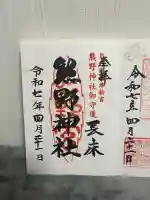 令和七年四月二十一日
奉拝
熊野神社御守護
長床
熊野神社
令和七年四月二十一日